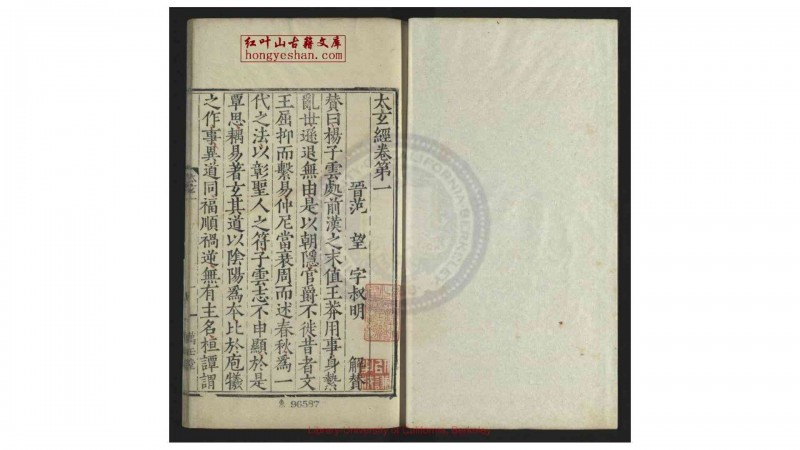 红叶山古籍文库
hongyeshan.com
太玄經卷第一
晉范望字叔明解贊
贊曰楊子雲處前漢之末值王莽用事身縶
亂世遜退無由是以朝隱官爵不徙昔者文
王屈抑而繫易仲尼當衰周而述春秋爲一
代之法以彰聖人之符子雲志不申顯於是
覃思耦易著玄其道以陰陽爲本比於庖犧
之作事異道同福順禍逆無有主名桓譚謂
96587